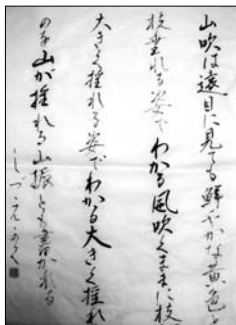 山吹は遠目に見ても鮮やかな黄色と
枝垂れる姿でわかる風吹くままに枝
大きく揺れる姿でわかる大きく揺れ
山が揺れる山振とも書かれる